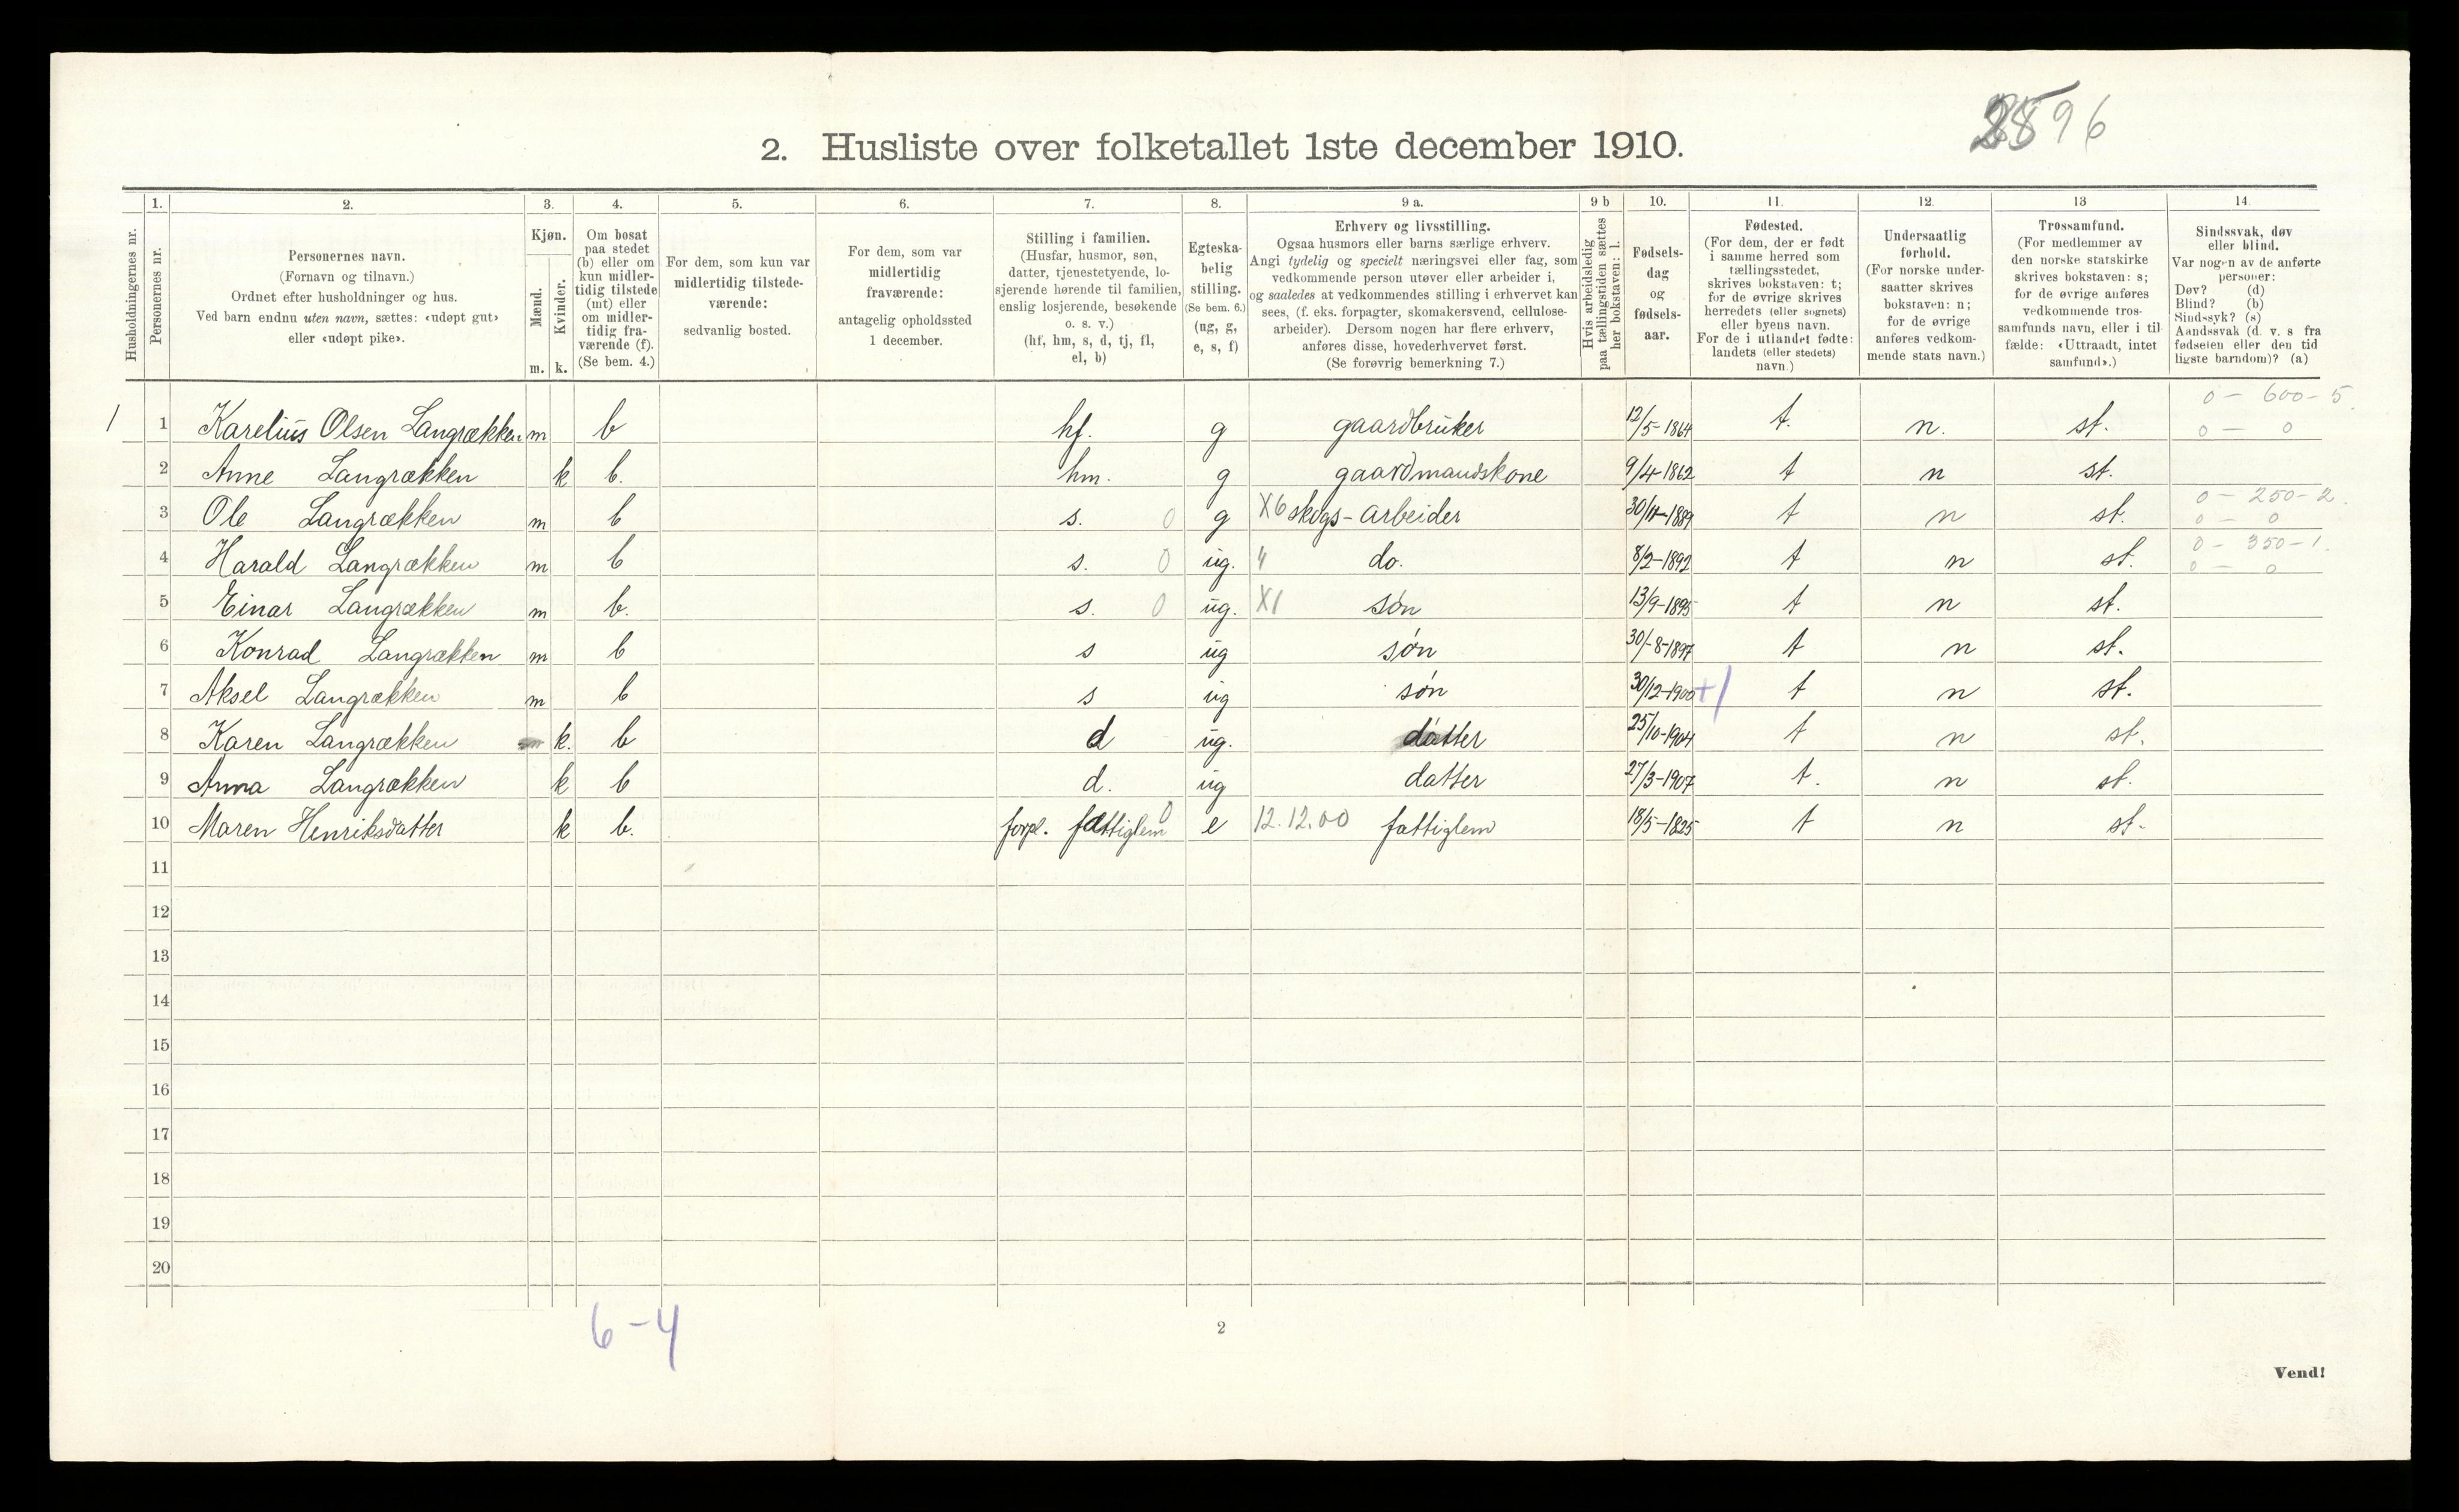 96
2. Husliste over folketallet 1ste december 1910.
Husholdningernes nr.
1.
Personernes nr.
2.
Personernes navn.
(Fornavn og tilnavn.)
Ordnet efter husholdninger og hus.
Ved barn endnu uten navn, sættes: «udøpt gut»
eller «udøpt pike».
3.
Kjøn.
Mænd.
Kvinder.
m. k.
4.
Om bosat
paa stedet
(b) eller om
kun midler-
tidig tilstede
(mt) eller
om midler-
tidig fra-
værende (f).
(Se bem. 4.)
5.
For dem, som kun var
midlertidig tilstede-
værende:
sedvanlig bosted.
6.
For dem, som var
midlertidig
fraværende:
antagelig opholdssted
1 december.
7.
Stilling i familien.
(Husfar, husmor, søn,
datter, tjenestetyende, lo-
sjerende hørende til familien,
enslig losjerende, besøkende
o. s. v.)
(hf, hm, s, d, tj, fl,
el, b)
8.
Egteska-
belig
stilling.
(Se bem. 6.)
(ug, g,
e, s, f)
9 a.
Erhverv og livsstilling.
Ogsaa husmors eller barns særlige erhverv.
Angi tydelig og specielt næringsvei eller fag, som
vedkommende person utøver eller arbeider i,
og saaledes at vedkommendes stilling i erhvervet kan
sees, (f. eks. forpagter, skomakersvend, cellulose-
arbeider). Dersom nogen har flere erhverv,
anføres disse, hovederhvervet først.
(Se forøvrig bemerkning 7.)
9 b
Hvis arbeidsledig
paa tællingstiden sættes
her bokstaven: l.
10.
Fødsels-
dag
og
fødsels-
aar.
11.
Fødested.
(For dem, der er født
i samme herred som
tællingsstedet,
skrives bokstaven: t;
for de øvrige skrives
herredets (eller sognets)
eller byens navn.
For de i utlandet fødte:
landets (eller stedets)
navn.)
12.
Undersaatlig
forhold.
(For norske under-
saatter skrives
bokstaven: n;
for de øvrige
anføres vedkom-
mende stats navn.)
13
Trossamfund.
(For medlemmer av
den norske statskirke
skrives bokstaven: s;
for de øvrige anføres
vedkommende tros-
samfunds navn, eller i til-
fælde: «Uttraadt, intet
samfund».)
14.
Sindssvak, døv
eller blind.
Var nogen av de anførte
personer:
Døv? (d)
Blind? (b)
Sindssyk? (s)
Aandssvak (d. v. s fra
fødselen eller den tid
ligste barndom)? (a)
0 - 600 - 5.
1 1 Karelius Olsen Langrækken m b hf. g gaardbruker 12/5-1864 t. n. st. 0 - 0
2 Anne Langrækken k b. hm. g gaardmandskone 9/4-1862 t n st.
0 - 250 - 2.
3 Ole Langrækken m b s. 0 g X6 skogs-arbeider 30/11-1889 t n st. 0 - 0
0 - 350 - 1.
4 Harald Langrækken m b s. 0 ug. " do. 8/2-1892 t n st. 0 - 0
5 Einar Langrækken m b. s. 0 ug. X1 søn 13/9-1895 t n st.
6 Konrad Langrækken m b s ug søn 30/8-1897 t n st.
7 Aksel Langrækken m b s ug søn 30/12-1900 +1 t n st.
8 Karen Langrækken k. b d ug. datter 25/10-1904 t n st.
9 Anna Langrækken k b d. ug datter 27/3-1907 t. n st.
10 Maren Henriksdatter k b. forpl. fattiglem 0 e 12.12.00 fattiglem 18/5-1825 t n st-
11
12
13
14
15
16
17
18
19
20
6-4
2
Vend!